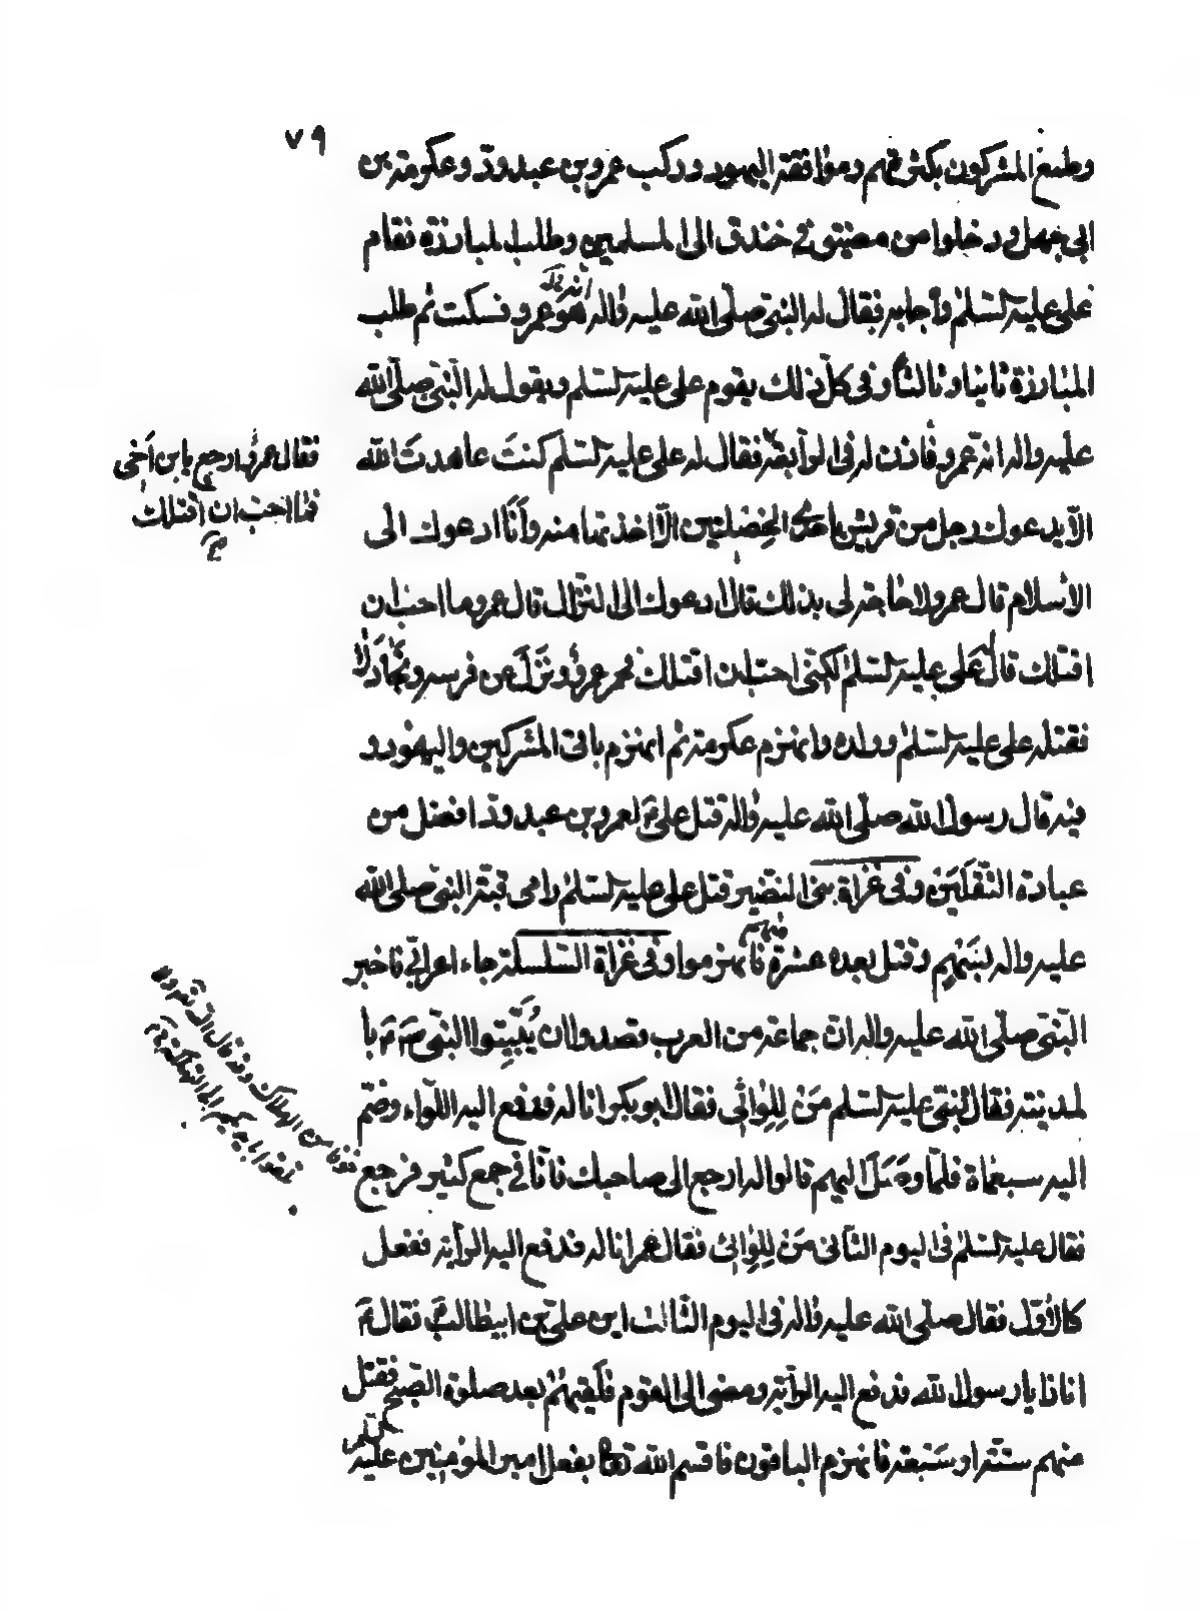 ٧٩
وطمع المشركون بكثرتهم وموافقة اليهود وركب عمرو بن عبد ودّ وعكرمة بن
ابى جهل ودخلوا من مضيق فى خندق الى المسلمين وطلب المبارزة فقام
على عليه السّلم وأجابه فقال له النبىّ صلّى الله عليه وآله هو عمرو فسكت ثم طلب
المبارزة ثانيا وثالثا وفى كلّ ذلك يقوم على عليه السّلم ويقول له النبىّ صلّى الله
عليه واله انّه عمرو فأذن له فى الرّابعة فقال له على عليه السّلم كنتَ عاهدتَ الله
الّا يدعوك رجل من قريش باحدى الخصلتين الّا اخذتها منه وأنَا ادعوك الى
الأسلام قال عمرو لا حاجة لى بذلك قال ادعوك الى النّزال قال عمرو ما احبّ ان
اقتلك قال على عليه السّلم لكنّى احبّ ان اقتلك فحمى عمرو ونَزَلَ عن فرسه وتجادلا
فقتله على عليه السّلم وولده وانهزم عكرمة ثم انهزم باقى المشركين واليهود و
فيه قال رسول الله صلّى الله عليه وآله قتل علىّ لعمرو بن عبد ودّ افضل من
عبادة الثّقلَين وفى غزاة بنى النضير قتل على عليه السّلم رامى قبّة النبىّ صلى الله
عليه واله بسَهم وقتل بعده عشرة منهم فانهزموا وفى غزاة السّلسلة جاء اعرابىّ فاخبر
النّبىّ صلّى الله عليه واله انّ جماعة من العرب قصدوا ان يُبَيّتوا النبىّ بـا
لمدينة فقال النّبىّ عليه السّلم مَنْ لِلِوائى فقال ابو بكر انا له فدفع اليه اللّواء وضمّ
اليه سبعمأة فلمّا وصَلَ اليهم قالوا له ارجع الى صاحبك فانّا فى جمع كثير فرجع
فقال عليه السّلم فى اليوم الثّانى مَنْ لِلِوائى فقال عمر انا له فدفع اليه الرّأية ففعل
كالأوّل فقال صلّى الله عليه وآله فى اليوم الثّالث اين علىّ بن ابيطالب فقال
انا ذا يا رسول الله فدفع اليه الرّأية ومضى الى القوم فلَقِيَهُمْ بعد صلوة الصّبح فقتل
منهم ستّة او سَبعة فانهزم الباقون فاقسم الله بفعل امير المؤمنين عليه
فقال عمرو ارجع يا بن أخى
فما احبّ ان اقتلك
خوفا من الهلاك وقد قال الله